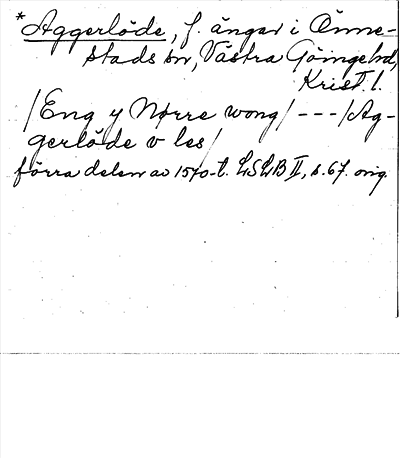 *Aggerlöde, f. ängar i Önne-
stads sn, Västra Göingehd,
Krist. l.
/Eng y Nørre wong/ --- /Ag-
gerlöde v les/
förra delen av 1540-t. LSLB II, s. 67. orig.